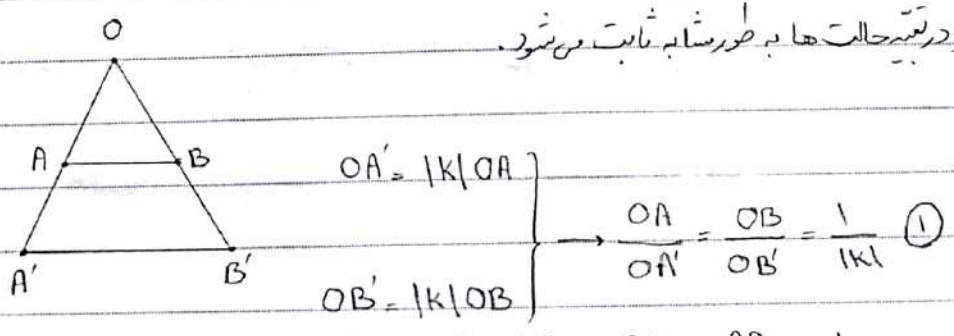 در بقیه حالت ها به طور مشابه ثابت می شود.
O
A B
A' B'
OA' = |K| OA
OB' = |K| OB
→ OA/OA' = OB/OB' = 1/|K| ①